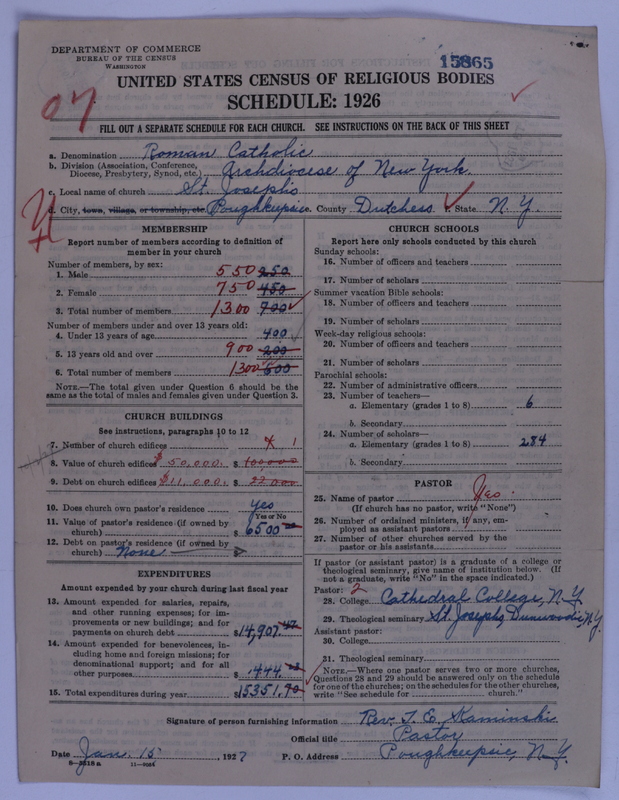 DEPARTMENT OF COMMERCE
BUREAU OF THE CENSUS
WASHINGTON
15865
UNITED STATES CENSUS OF RELIGIOUS BODIES
SCHEDULE: 1926
FILL OUT A SEPARATE SCHEDULE FOR EACH CHURCH. SEE INSTRUCTIONS ON THE BACK OF THIS SHEET
a. Denomination Roman Catholic
b. Division (Association, Conference, Diocese, Presbytery, Synod, etc.) Archdiocese of New York.
c. Local name of church St. Josephs
d. City, town, village, or township, etc. Poughkeepsie. County Dutchess. State N. Y.
MEMBERSHIP
Report number of members according to definition of member in your church
Number of members, by sex:
1. Male 550 250
2. Female 750 450
3. Total number of members 1300 700
Number of members under and over 13 years old:
4. Under 13 years of age 400
5. 13 years old and over 900 200
6. Total number of members 1300 600
NOTE.—The total given under Question 6 should be the same as the total of males and females given under Question 3.
CHURCH BUILDINGS
See instructions, paragraphs 10 to 12
7. Number of church edifices 1
8. Value of church edifices $50,000. $ 100000
9. Debt on church edifices $11,000. $ 22000
10. Does church own pastor's residence yes
Yes or No
11. Value of pastor's residence (if owned by church) $ 6500
12. Debt on pastor's residence (if owned by church) None $
EXPENDITURES
Amount expended by your church during last fiscal year
13. Amount expended for salaries, repairs, and other running expenses; for improvements or new buildings; and for payments on church debt $ 14,907.
14. Amount expended for benevolences, including home and foreign missions; for denominational support; and for all other purposes $ 444.
15. Total expenditures during year $ 15351.90
CHURCH SCHOOLS
Report here only schools conducted by this church
Sunday schools:
16. Number of officers and teachers
17. Number of scholars
Summer vacation Bible schools:
18. Number of officers and teachers
19. Number of scholars
Week-day religious schools:
20. Number of officers and teachers
21. Number of scholars
Parochial schools:
22. Number of administrative officers
23. Number of teachers—
a. Elementary (grades 1 to 8) 6
b. Secondary
24. Number of scholars—
a. Elementary (grades 1 to 8) 284
b. Secondary
PASTOR
25. Name of pastor Yes.
(If church has no pastor, write "None")
26. Number of ordained ministers, if any, employed as assistant pastors
27. Number of other churches served by the pastor or his assistants
If pastor (or assistant pastor) is a graduate of a college or theological seminary, give name of institution below. (If not a graduate, write "No" in the space indicated.)
Pastor: 2
28. College Cathedral College, N.Y.
29. Theological seminary St. Josephs Dunwoodie, N.Y.
Assistant pastor:
30. College
31. Theological seminary
NOTE.—Where one pastor serves two or more churches, Questions 28 and 29 should be answered only on the schedule for one of the churches; on the schedules for the other churches, write "See schedule for church."
Signature of person furnishing information Rev. J. E. Kaminski
Official title Pastor
Date Jan. 15, 1927 P. O. Address Poughkeepsie, N.Y.
8—3518 a 11—9054